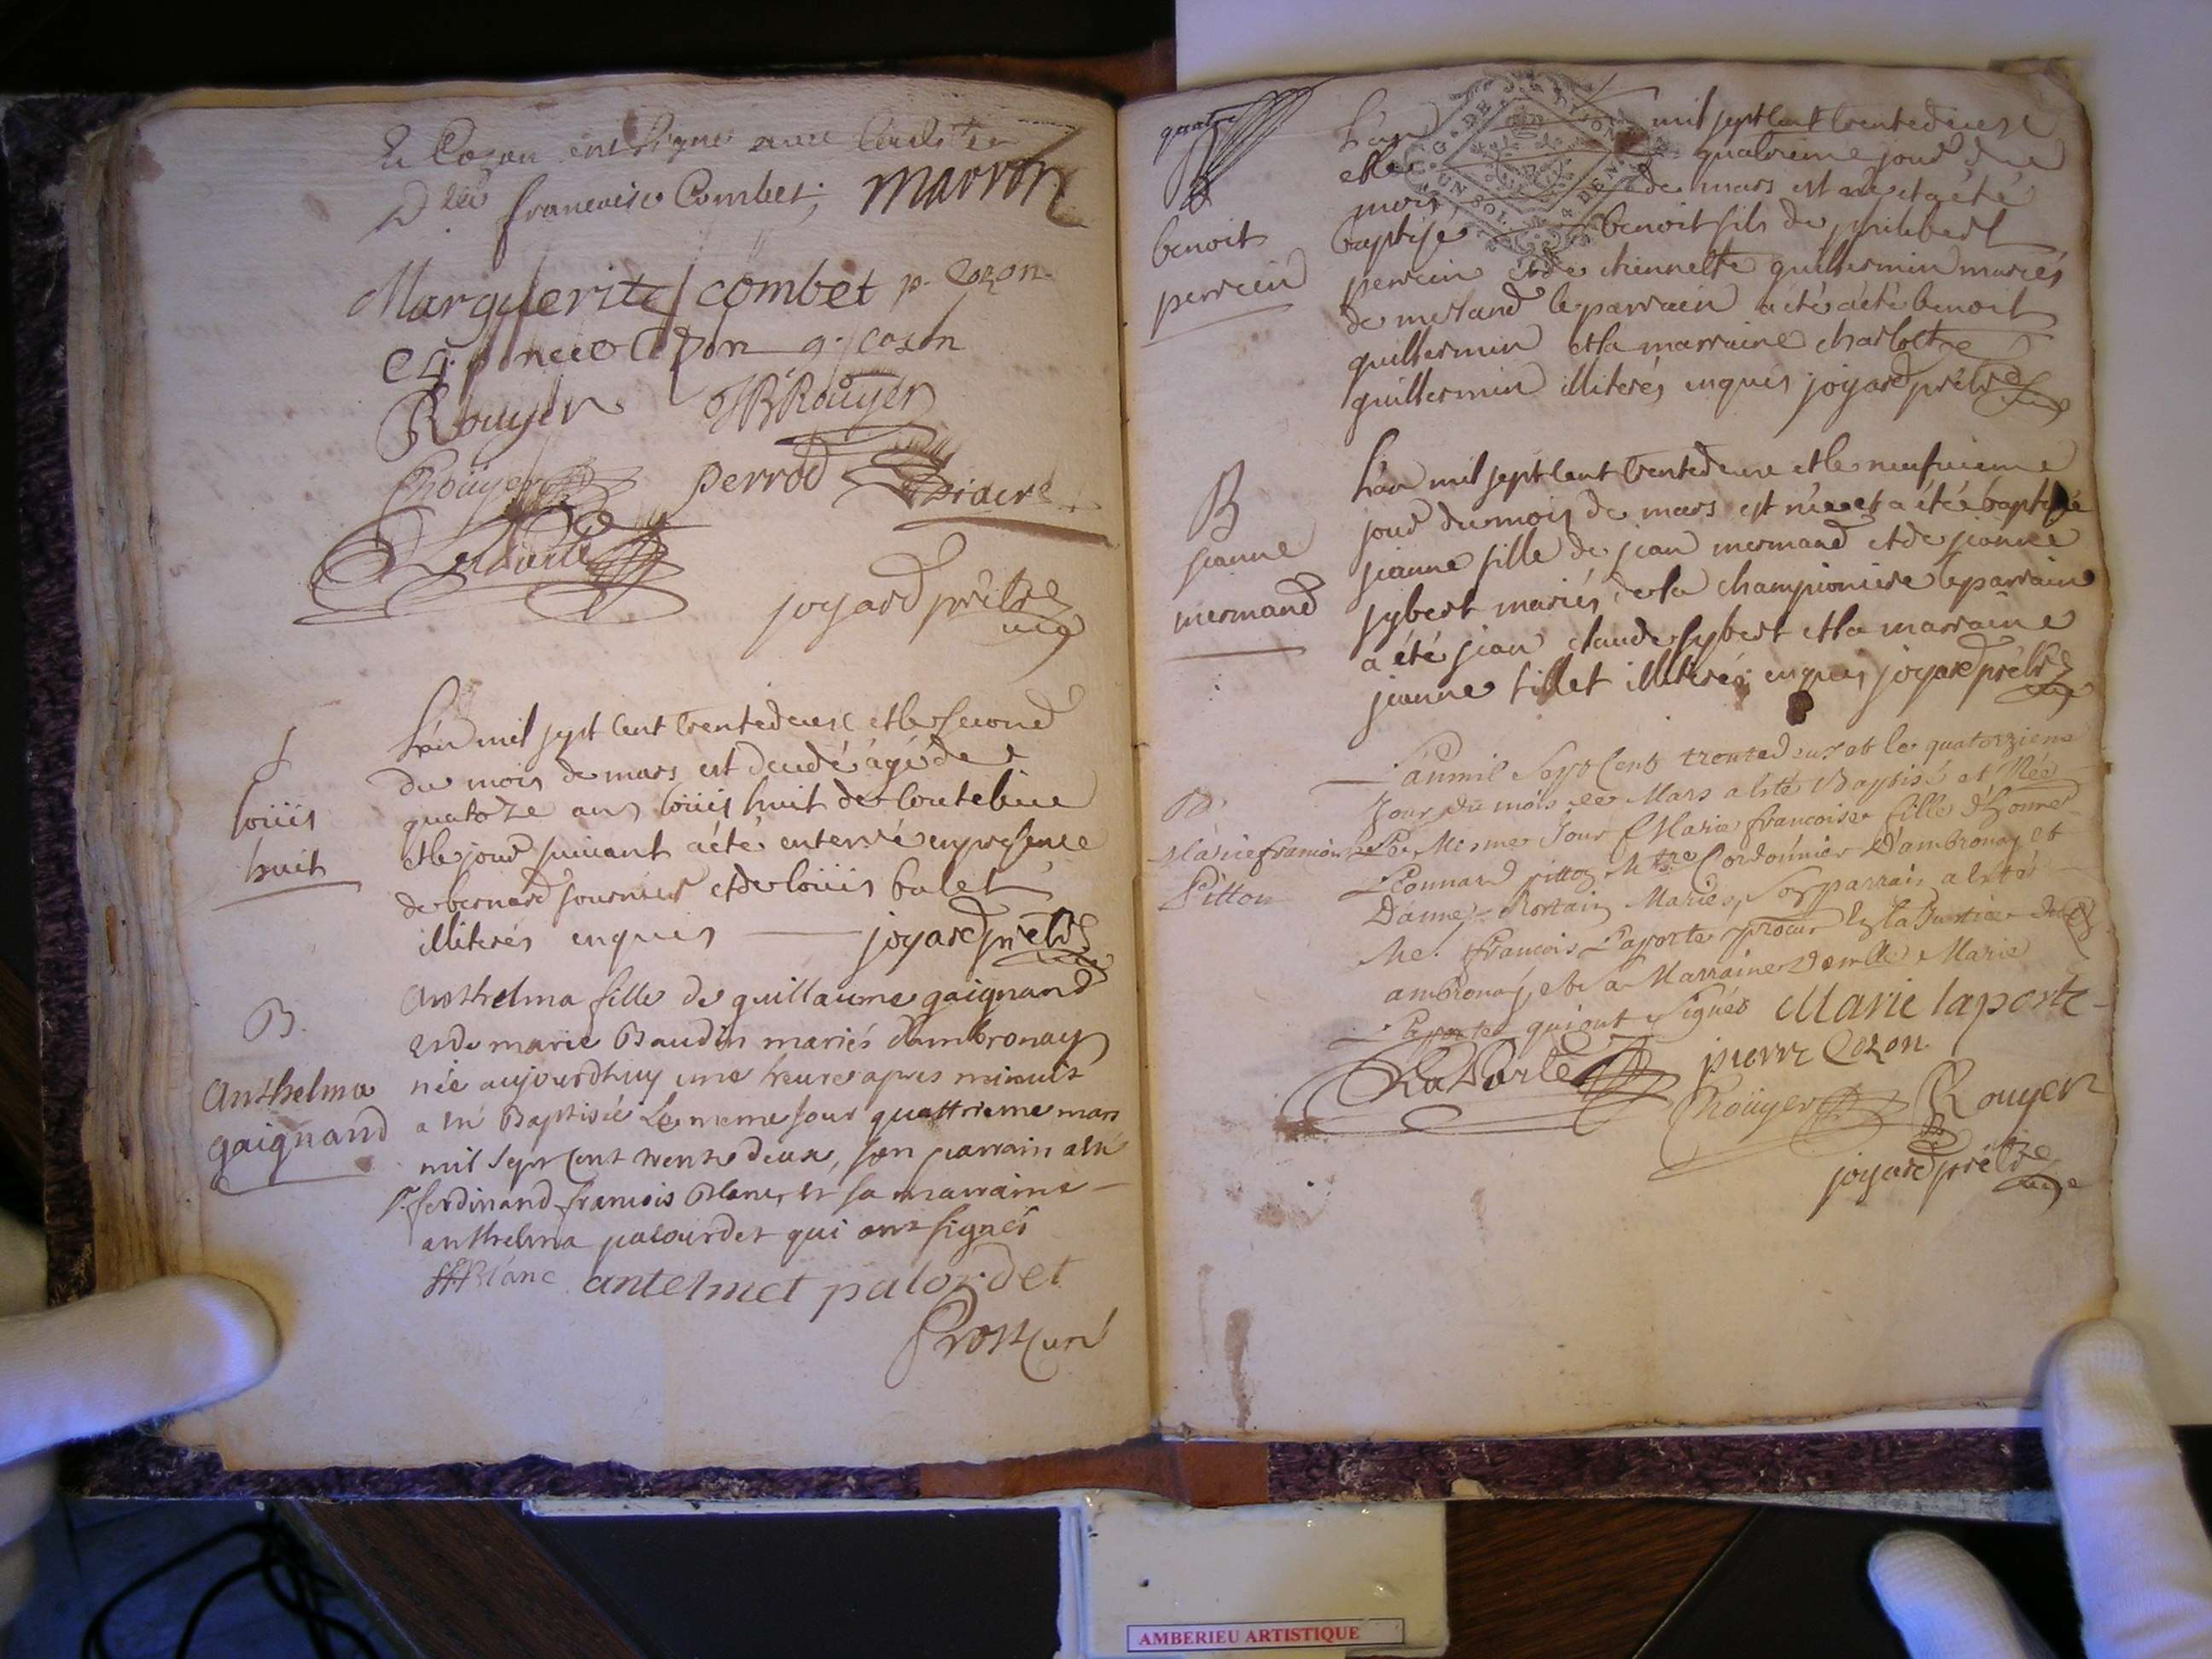 françoise Combet; marron
Marguerite combet p. Cozon
cozon g. cozon
Rouyer JB Rouyer
Rouyer perrod
Laporte
joyard prêtre
vicr
L'an mil sept cent trente deux et le second
du mois de mars est decédé agé de
quatorze ans loüis huit de
et le jour suivant a été enterré en presence
de bernard fournier et de loüis balet
illiterés enquis joyard prêtre
loüis
huit
B.
Anthelma
gaignand
Anthelma fille de guillaume gaignand
et de marie Baudin mariés d'ambronay
née aujourdhuy une heure apres minuit
a été Baptisée Le meme jour quattrieme mars
mil sept cent trente deux, son parrain a été
Sr. ferdinand francois Blanc, et sa marraine
anthelma palourdet qui ont signés
ffBlanc antelmet palordet
Prost Curé
quatre
B
benoit
perrein
L'an mil sept cent trente deux
et le quatrieme jour du
mois de mars est né et a été
baptisé benoit fils de philibert
perrein et de thiennette guillermin mariés
de merland le parrain a été a été benoit
guillermin et la marraine charlotte
guillermin illiterés enquis joyard prêtre
B
jeanne
mermand
L'an mil sept cent trente deux et le neufvieme
jour du mois de mars est née et a été baptisé
jeanne fille de jean mermand et de jeanne
jybert mariés de la championiere le parrain
a été jean claude jybert et la marraine
jeanne tillet illiterés enquis joyard prêtre
B
Marie francoise
Pitton
L'an mil sept cents trente deux et le quatorzieme
Jour du mois de Mars a esté Baptisé et Née
Le Mesme Jour Marie francoise fille d'honne
Leonnard pitton Mtre Cordonnier D'ambronay et
D'anne Mariés, Son parrain a esté
Me. francois Laporte procur En la Justice
ambronay, et Sa Marraine Demlle Marie
Laporte qui ont Signés Marie laporte
LaPorte pierre Cozon
Rouyer Rouyer
joyard prêtre
vicr
UN SOL 4 DEN.
AMBERIEU ARTISTIQUE